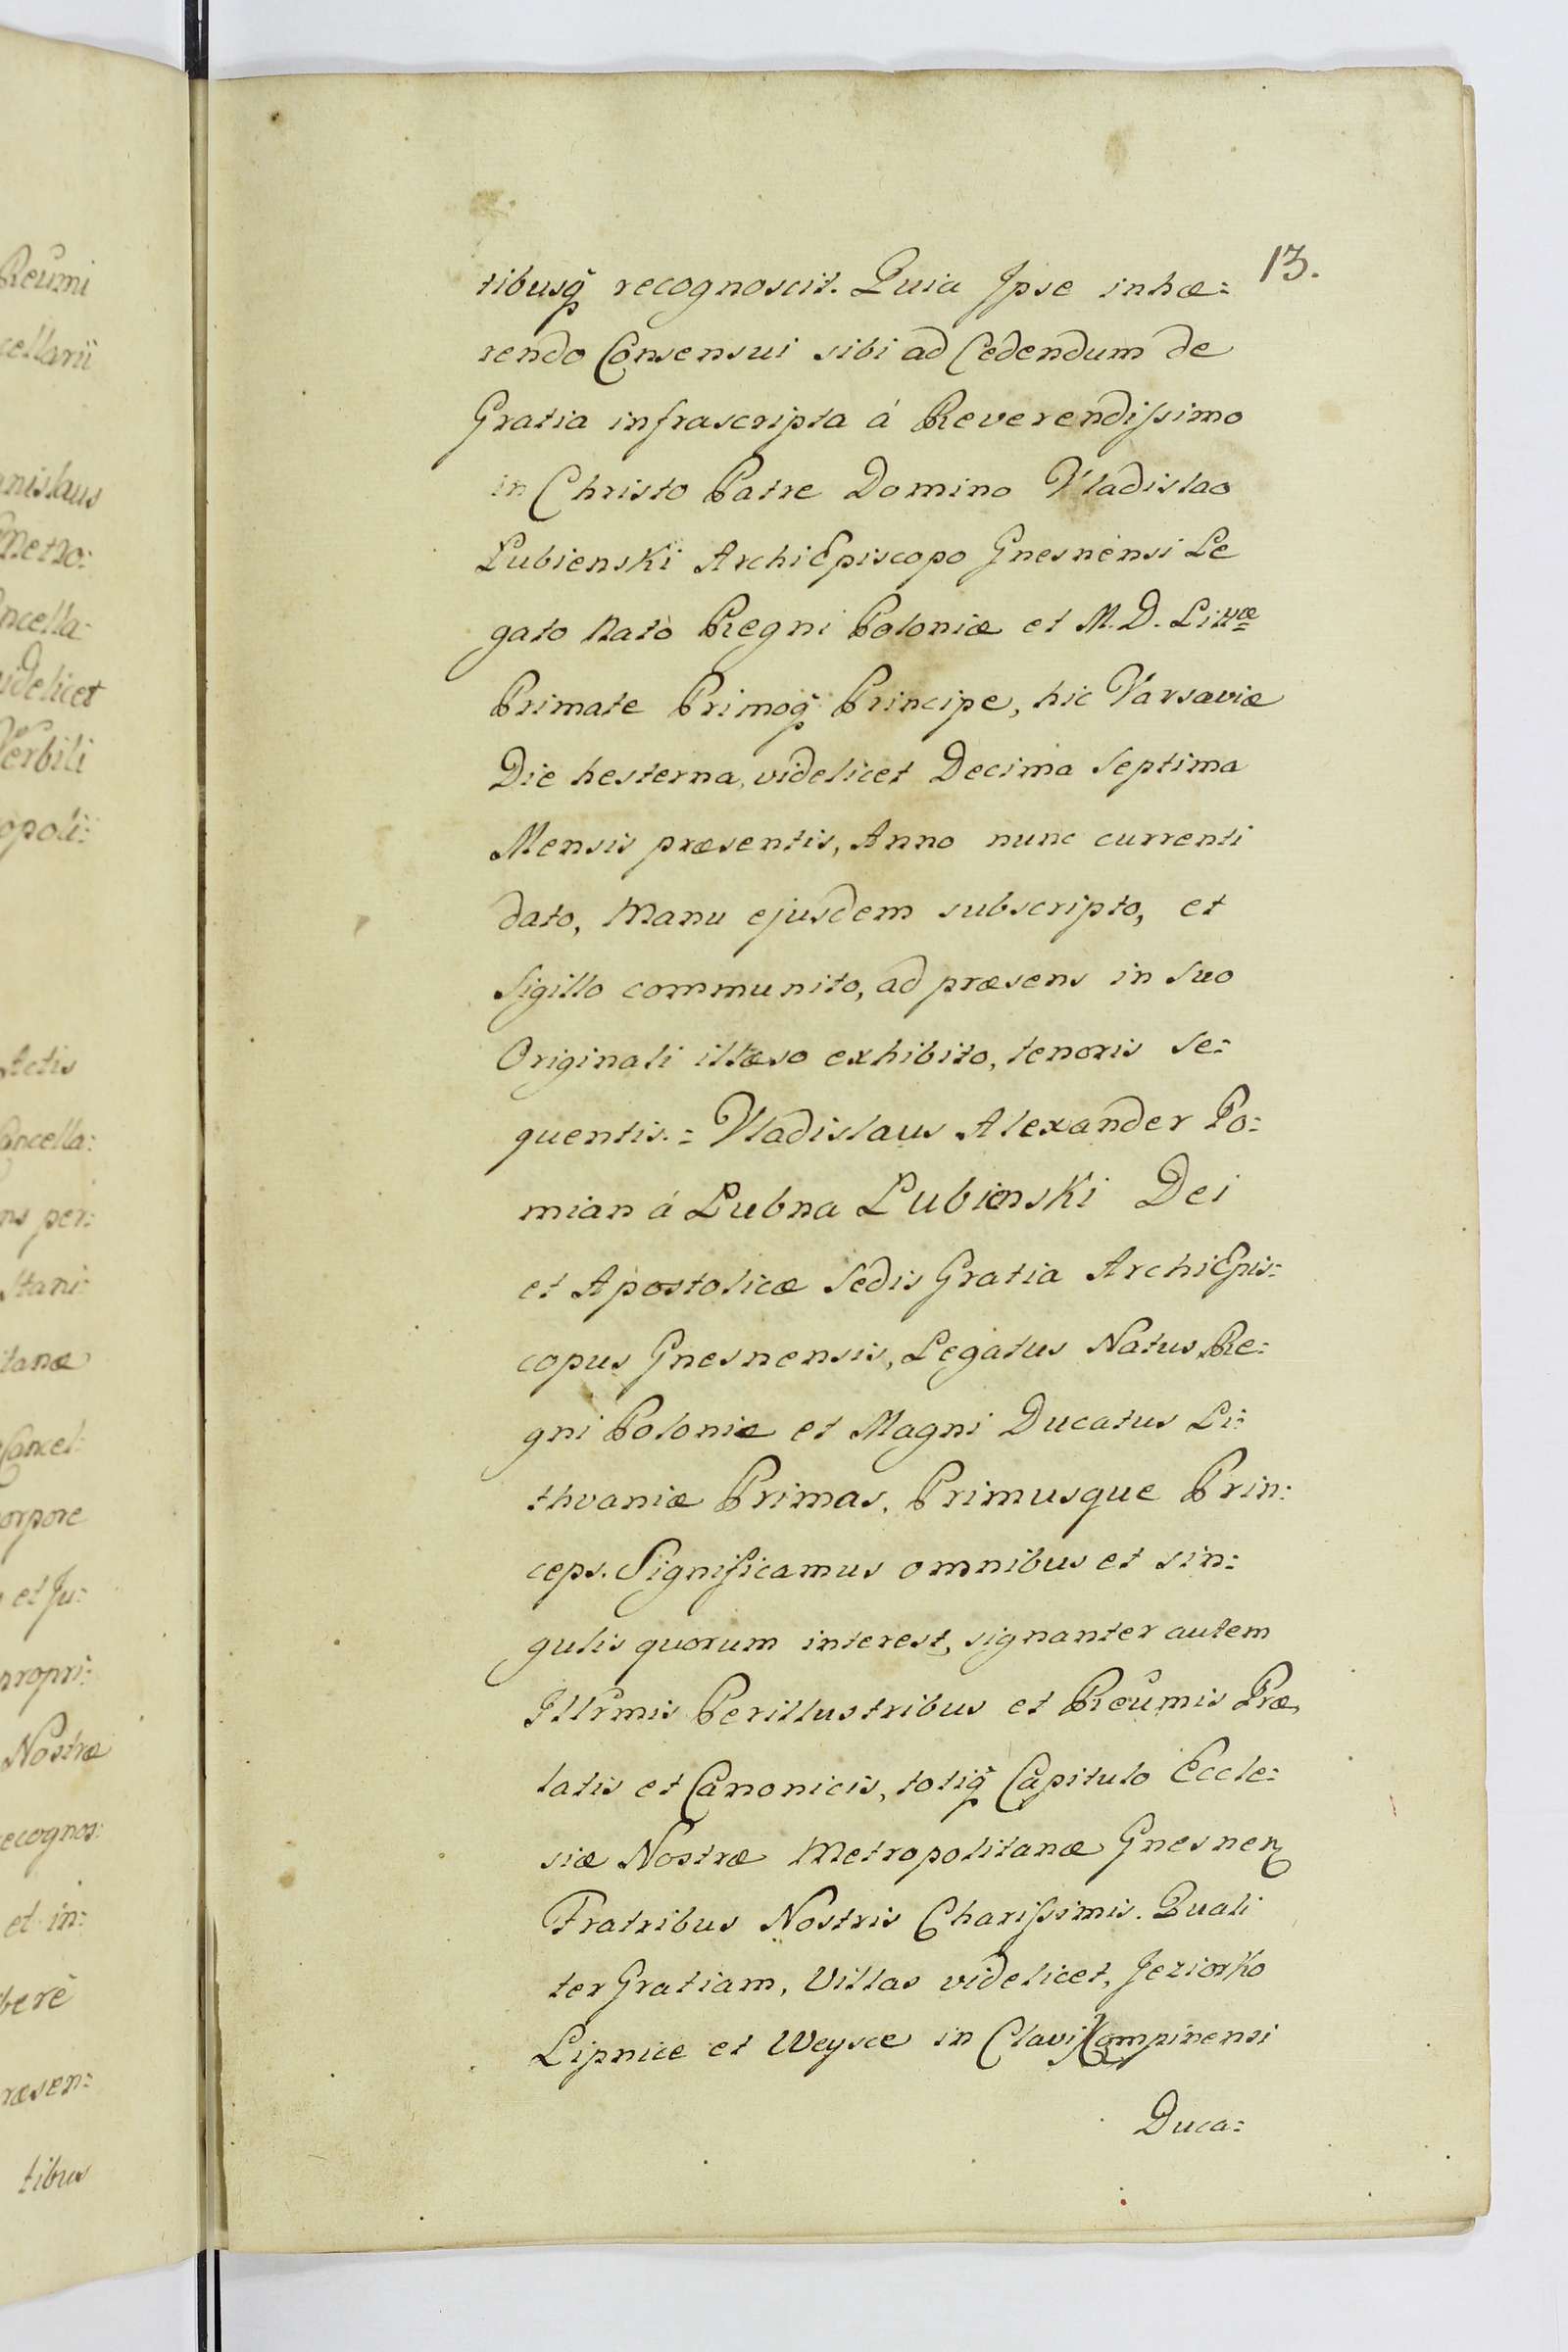 Reumi
cellarii
nislaus
Metro:
ncella:
idelicet
Verbili
opoli:
Actis
Cancella:
ns per:
Stani:
itanæ
Cancel:
orpore
et Ju:
propri:
Nostræ
ecognos:
et in:
bere
ræsen:
tibus
13.
tibusq̃ recognoscit. Quia Ipse inhæ:
rendo Consensui sibi ad Cedendum de
Gratia infrascripta á Reverendiſsimo
in Christo Patre Domino Vladislao
Lubienski ArchiEpiscopo Gnesnensi Le
gato Nato Regni Poloniæ et M. D. Littæ
Primate Primoq̃ Principe, hic Varsaviæ
Die hesterna, videlicet Decima Septima
Mensis præsentis, Anno nunc currenti
dato, Manu ejusdem subscripto, et
Sigillo communito, ad præsens in Suo
Originali illæso exhibito, tenoris Se:
quentis. = Vladislaus Alexander Po:
mian á Lubna Lubienski Dei
et Apostolicæ Sedis Gratia ArchiEpis:
copus Gnesnensis, Legatus Natus Re:
gni Poloniæ et Magni Ducatus Li:
thvaniæ Primas, Primusque Prin:
ceps. Significamus omnibus et sin:
gulis quorum interest, signanter autem
Illrmis Perillustribus et Reûmis Præ
latis et Canonicis, totiq̃ Capitulo Eccle:
siæ Nostræ Metropolitanæ Gnesnen
Fratribus Nostris Chariſsimis. Quali
ter Gratiam, Villas videlicet, Jeziorko
Lipnice et Weysce in Clavi Kompinensi
Duca: